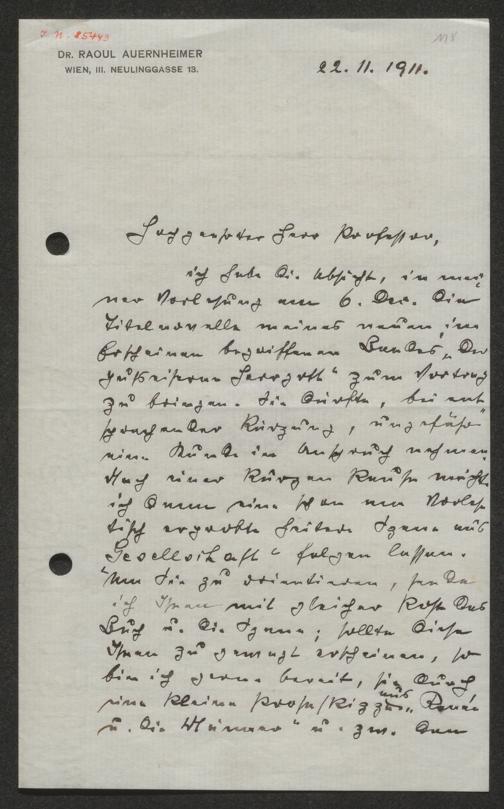 J. N. 85443
118
DR. RAOUL AUERNHEIMER
WIEN, III. NEULINGGASSE 13.
22. 11. 1911.
Hochgeehrter Herr Professor,
ich habe die Absicht, in mei-
ner Vorlesung am 6. Dec. die
Titelnovelle meines neuen, im
Erscheinen begriffenen Bandes „Der
gußeiserne Herrgott" zum Vortrag
zu bringen. Sie dürfte, bei ent-
sprechender Kürzung, ungefähr
eine Stunde in Anspruch nehmen.
Nach einer kurzen Pause möchte
ich dann eine schon am Vorlese-
tisch erprobte heitere Szene aus
Gesellschaft" folgen lassen.
Um Sie zu orientieren, sende
ich Ihnen mit gleicher Post das
Buch u. die Szene; sollte diese
Ihnen zu gewagt erscheinen, so
bin ich gerne bereit, sie durch
eine kleine Prosaskizze aus „Renée
u. die Männer" u. zw. den